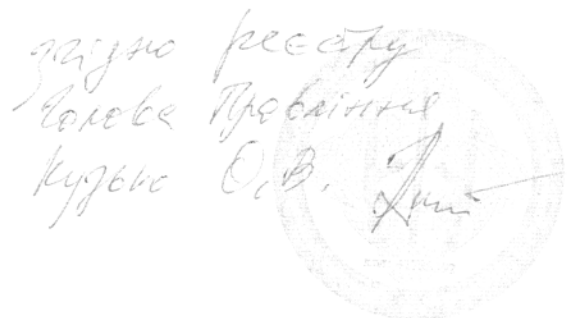 згідно реєстру
Голова Правління
Кузьмо О,В.